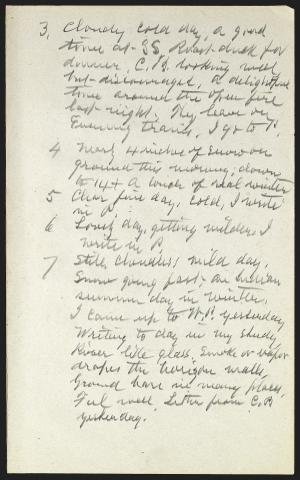 3, Cloudy cold day, a good
time at SS. Roast duck for
dinner, C.B. looking well
but discouraged, a delightful
time around the open fire
last night. They leave on
Evening trains, I go to P.
4 Nearly 4 inches of snow on
ground this morning; down
to 14+ A touch of real winter
5 Clear fine day, cold, I write
in P.
6 Lovely day, getting milder, I
write in P.
7 Still, cloudless, mild day,
Snow going fast; an Indian
summer day in winter.
I came up to W.P. yesterday
Writing to day in my study
River like glass. Smoke or vapor
drapes the horizon walls,
Ground bare in many places,
Feel well. Letter from C.B
yesterday.